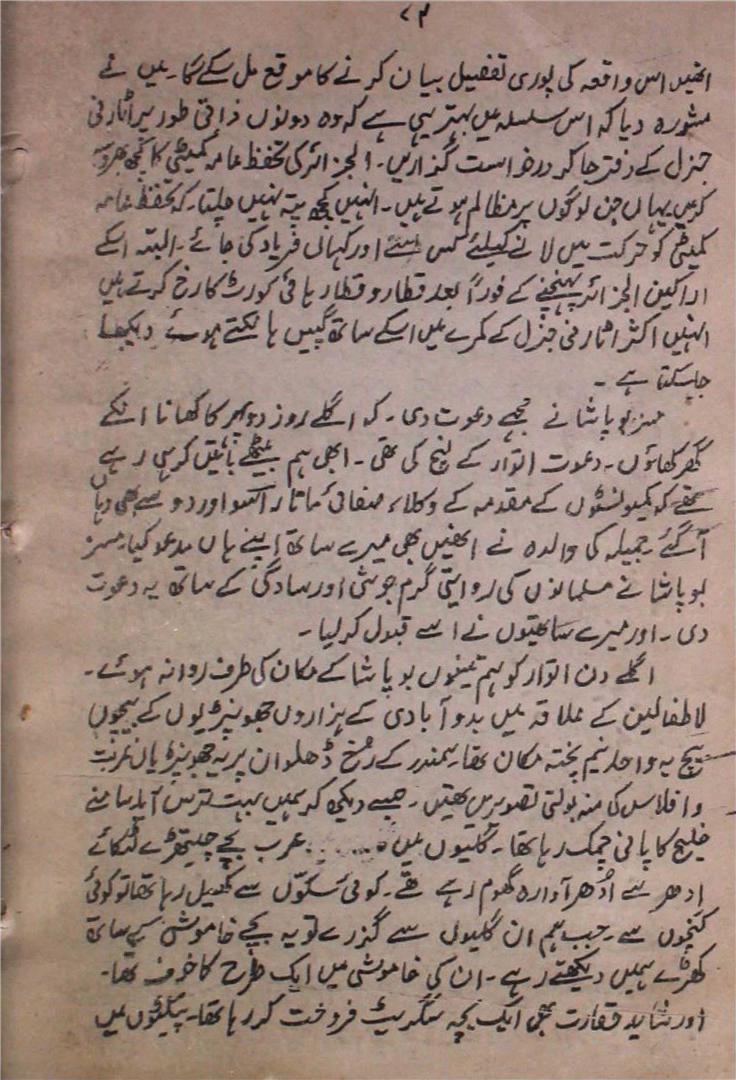 ۷۳
انھیں اس واقعہ کی پوری تفصیل بیان کرنے کا موقع مل سکے گا۔ میں نے
مشورہ دیا کہ اس سلسلہ میں بہتر یہی ہے کہ وہ دونوں ذاتی طور پر اٹارنی
جنرل کے دفتر جا کر درخواست گذاریں۔ الجزائر کی تحفظ عامہ کمیٹی کا کچھ بھروسہ
کریں یہاں جن لوگوں پر مظالم ہوتے ہیں۔ انہیں کچھ پتہ نہیں چلتا۔ کہ تحفظ عامہ
کمیٹی کو حرکت میں لانے کیلئے کس سے اور کہاں فریاد کی جائے۔ البتہ اسکے
اراکین الجزائر پہنچنے کے فوراً بعد قطار و قطار ہائی کورٹ کا رخ کرتے ہیں
انہیں اکثر اٹارنی جنرل کے کمرے میں اسکے ساتھ گپیں ہانکتے ہوئے دیکھا
جا سکتا ہے ۔
مسز بوپاشا نے مجھے دعوت دی۔ کہ اگلے روز دوپہر کا کھانا انکے
گھر کھاؤں۔ دعوت اتوار کے لنچ کی تھی۔ ابھی ہم بیٹھے باتیں کر ہی رہے
تھے کہ کمیونسٹوں کے مقدمہ کے وکلاء صفائی ماتاراسو اور دوسے بھی وہاں
آ گئے۔ جمیلہ کی والدہ نے انھیں بھی میرے ساتھ اپنے ہاں مدعو کیا۔ مسز
بوپاشا نے مسلمانوں کی روایتی گرم جوشی اور سادگی کے ساتھ یہ دعوت
دی۔ اور میرے ساتھیوں نے اسے قبول کر لیا۔
اگلے دن اتوار کو ہم تینوں بوپاشا کے مکان کی طرف روانہ ہوئے۔
لاطفالین کے علاقہ میں بدو آبادی کے ہزاروں جھونپڑیوں کے بیچوں
بیچ یہ واحد نیم پختہ مکان تھا۔ سمندر کے رُخ ڈھلوان پر یہ جھونپڑیاں غربت
و افلاس کی منہ بولتی تصویریں تھیں۔ جسے دیکھ کر ہمیں بہت ترس آیا۔ سامنے
خلیج کا پانی چمک رہا تھا۔ گلیوں میں ...... عرب بچے چیتھڑے لٹکائے
ادھر سے اُدھر آوارہ گھوم رہے تھے۔ کوئی سکوں سے کھیل رہا تھا تو کوئی
کنچوں سے۔ جب ہم ان گلیوں سے گزرے تو یہ بچے خاموشی کے ساتھ
کھڑے ہمیں دیکھتے رہے۔ ان کی خاموشی میں ایک طرح کا خوف تھا۔
اور شاید حقارت بھی ایک بچہ سگریٹ فروخت کر رہا تھا۔ پیکٹوں میں